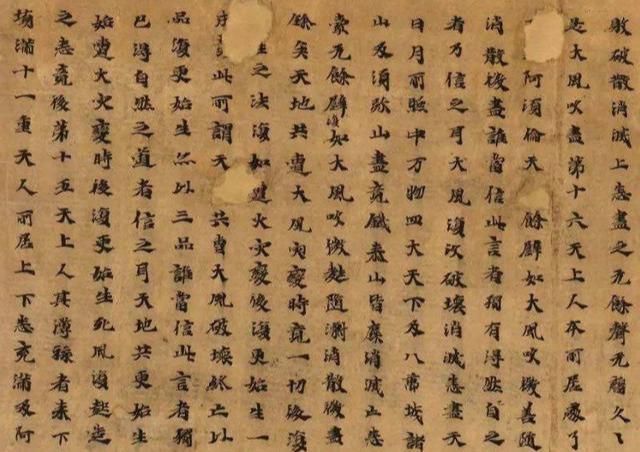 敗破散消滅上悉盡之无餘聲无久〻
是大風吹盡第十六天上人本所居處了
阿須倫天餘譬如大風吹微善随
消散微盡誰當信此言者獨有得然自之
者乃信之耳大風復吹破壞消滅悉盡天
日月所照中万物四大天下及八帝城諸
山及須弥山盡竟鐵泰山皆糜消滅亡悉
索无餘譬復如大風吹微麨随消散微盡
餘矣天地共遭大風灾變時竟一切後復
之法復如遭火灾變後復更始生一
此所謂天共曹大風破壞終亡以
品復更始生亦以三品誰當信此言者獨
已得自然之道者信之耳天地共更始生
始曹火灾變時後復更始生死風復起造
之悉竟後第十五天上人其薄祿者来下
填滿十一重天人所居上下悉充滿及阿